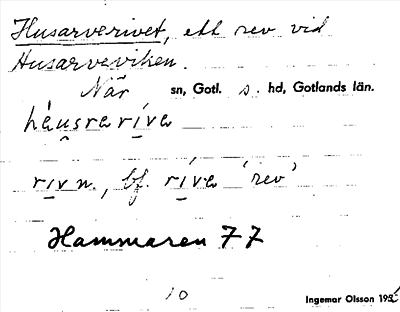 Husarverivet, ett rev vid
Husarveviken.
När sn, Gotl. s. hd, Gotlands län.
hèusrarívа
riv n., bf. ríva 'rev'
Hammaren 77
10
Ingemar Olsson 195